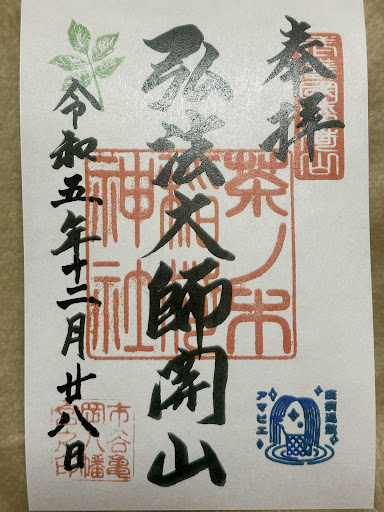 奉拝
弘法大師開山
令和五年十二月廿八日
茶ノ木
稲荷
神社
市谷亀
岡八幡
宮之印
疫病退散
アマビエ